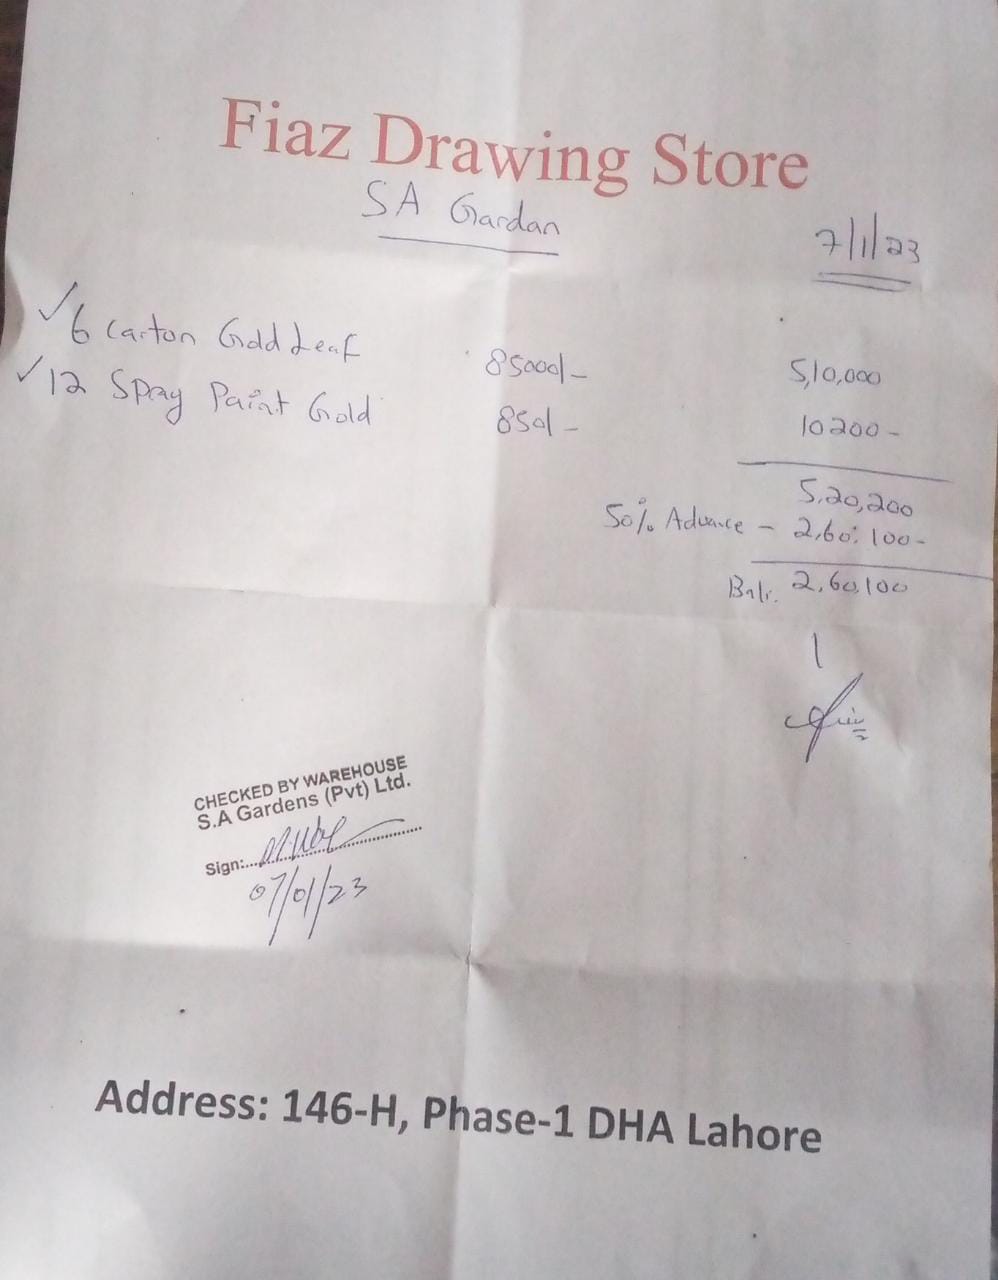 Fiaz Drawing Store
SA Gardan
7/1/23
✓ 6 Carton Gold Leaf 85000/- 5,10,000
✓ 12 Spray Paint Gold 850/- 10200-
5,20,200
50% Advance - 2,60,100-
Bal. 2,60,100
CHECKED BY WAREHOUSE
S.A Gardens (Pvt) Ltd.
Sign:
07/01/23
Address: 146-H, Phase-1 DHA Lahore